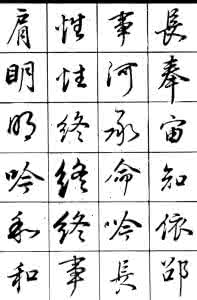 長奉宙知依邵
事河承命吟長
性性終終終事
肩明明吟和和